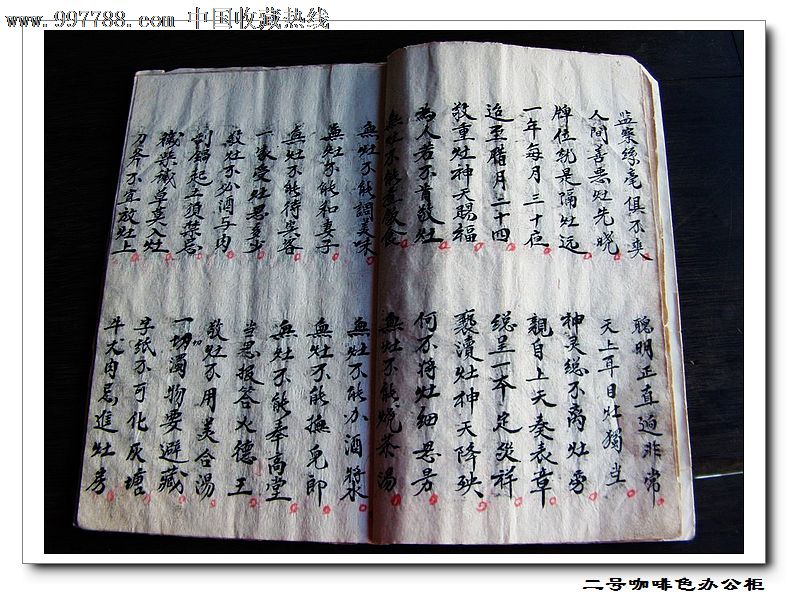 www.997788.com 中国收藏热线
监察絲毫俱不爽 聰明正直迥非常
人间善恶灶先晓 天上耳目灶獨当
牌位就是隔灶远 神灵总不离灶旁
一年每月三十夜 親自上天奏表章
迨至腊月二十四 総呈一本定災祥
敬重灶神天賜福 褻瀆灶神天降殃
為人若不肯敬灶 何不将灶细思量
無灶不能煮飯食 無灶不能燒茶湯
無灶不能調美味 無灶不能办酒漿
無灶不能和妻子 無灶不能撫児郎
無灶不能待賓客 無灶不能奉高堂
一家受灶恩多少 当思报答火德王
敬灶不必酒与肉 敬灶不用美合湯
刮鍋起土須禁忌 一切濁物要避藏
穢柴穢草莫入灶 字纸不可化灰塘
刀斧不宜放灶上 牛犬肉忌進灶房
二号咖啡色办公柜